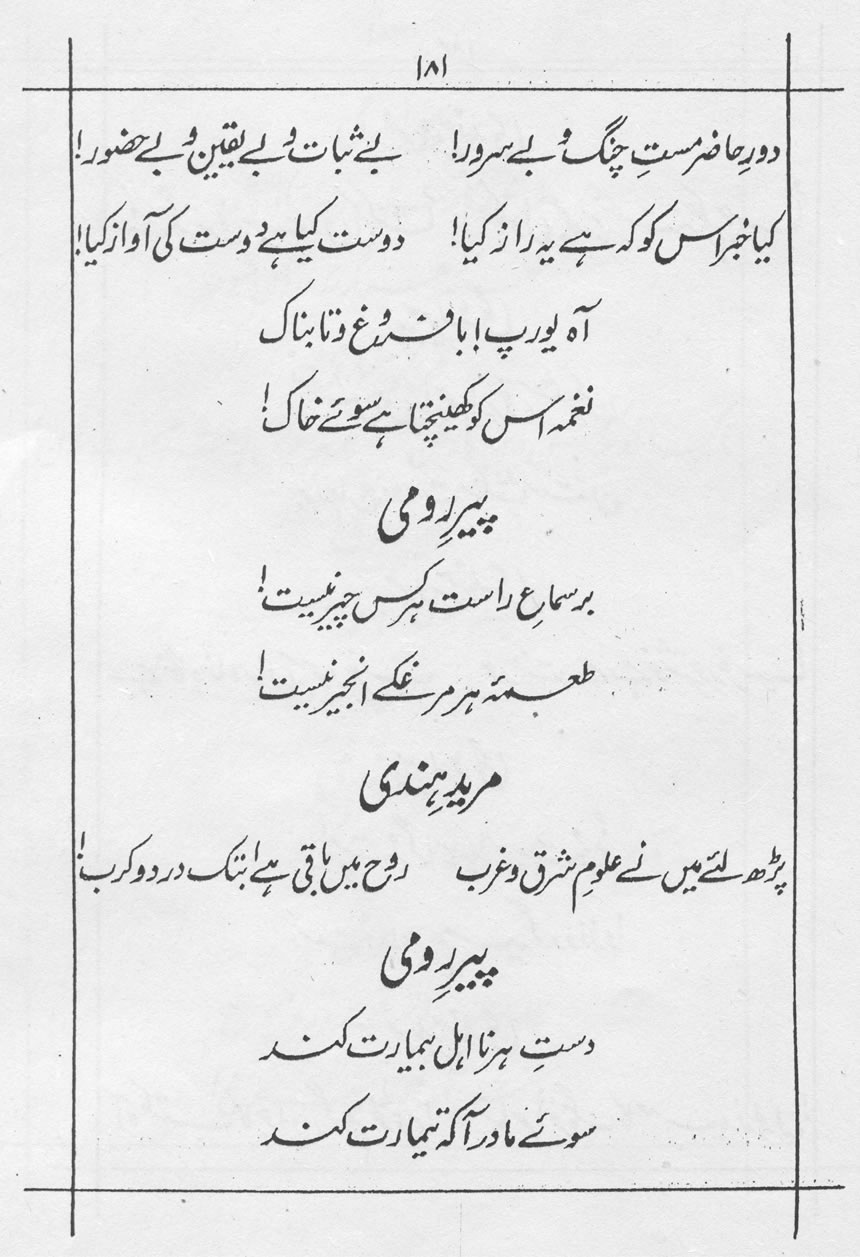 ۱۸۱
دورِ حاضر مستِ چنگ و بے سرور! بے ثبات و بے یقین و بے حضور!
کیا خبر اس کو کہ ہے یہ راز کیا! دوست کیا ہے دوست کی آواز کیا!
آہ یورپ! با فروغ و تابناک
نغمہ اس کو کھینچتا ہے سوئے خاک!
پیرِ رومی
بر سماعِ راست ہر کس چیر نیست!
طعمۂ ہر مرغکے انجیر نیست!
مریدِ ہندی
پڑھ لئے میں نے علومِ شرق و غرب روح میں باقی ہے ابتک درد و کرب!
پیرِ رومی
دستِ ہر نا اہل بیمارت کند
سوئے مادر آ کہ تیمارت کند